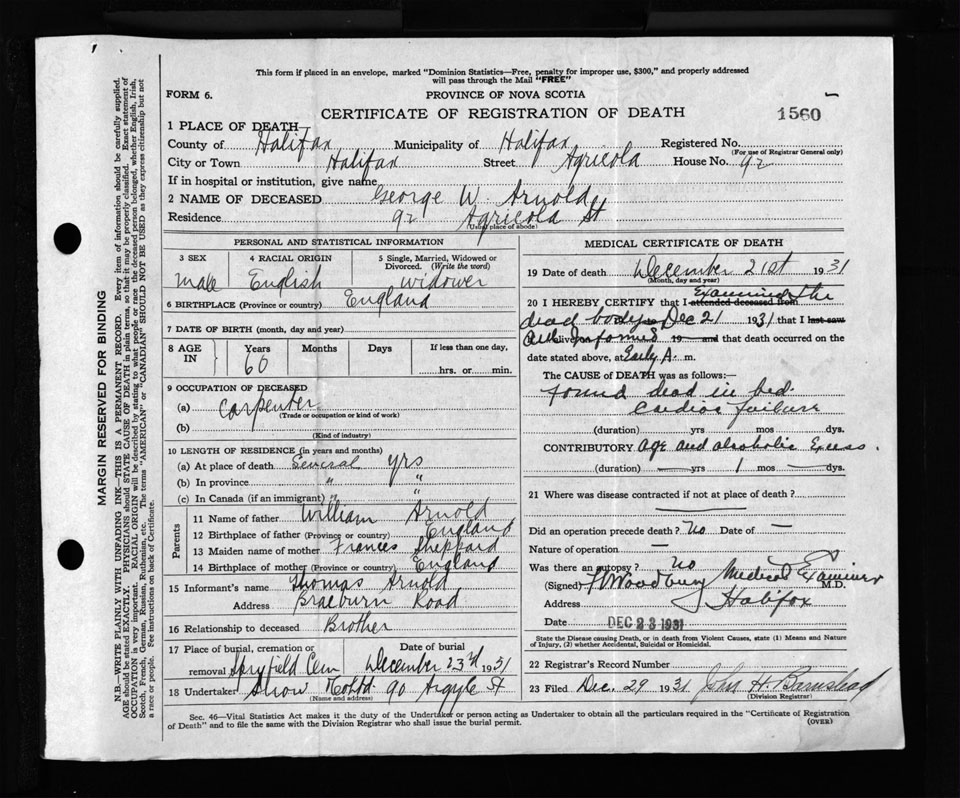 This form if placed in an envelope, marked "Dominion Statistics—Free, penalty for improper use, $300," and properly addressed
will pass through the Mail "FREE"
FORM 6.
PROVINCE OF NOVA SCOTIA
CERTIFICATE OF REGISTRATION OF DEATH
1560
1 PLACE OF DEATH—
County of Halifax Municipality of Halifax Registered No.
(For use of Registrar General only)
City or Town Halifax Street Agricola House No. 92
If in hospital or institution, give name
2 NAME OF DECEASED George W. Arnold
Residence 92 Agricola St
(Usual place of abode)
PERSONAL AND STATISTICAL INFORMATION
3 SEX 4 RACIAL ORIGIN 5 Single, Married, Widowed or
Divorced. (Write the word)
Male English widower
6 BIRTHPLACE (Province or country) England
7 DATE OF BIRTH (month, day and year)
8 AGE IN Years Months Days If less than one day,
60 hrs. or min.
9 OCCUPATION OF DECEASED
(a) Carpenter
(Trade or occupation or kind of work)
(b)
(Kind of industry)
10 LENGTH OF RESIDENCE (in years and months)
(a) At place of death Several yrs
(b) In province " "
(c) In Canada (if an immigrant) " "
Parents
11 Name of father William Arnold
12 Birthplace of father (Province or country) England
13 Maiden name of mother Frances Sheppard
14 Birthplace of mother (Province or country) England
15 Informant's name Thomas Arnold
Address Braeburn Road
16 Relationship to deceased Brother
17 Place of burial, cremation or Date of burial
removal Spryfield Cem December 23rd 1931
18 Undertaker Snow Co Ltd 90 Argyle St
(Name and address)
MEDICAL CERTIFICATE OF DEATH
19 Date of death December 21st 1931
(Month, day and year)
20 I HEREBY CERTIFY that I attended deceased from Examined the
dead body Dec 21 1931 that I last saw
alive on 19 and that death occurred on
date stated above, at Early A. m.
The CAUSE of DEATH was as follows:—
Found dead in bed.
Cardiac failure
(duration) yrs mos dys.
CONTRIBUTORY Age and alcoholic Excess.
(duration) — yrs 1 mos — dys.
21 Where was disease contracted if not at place of death?
Did an operation precede death? No Date of —
Nature of operation —
Was there an autopsy? No
(Signed) Woodbury Medical Examiner M.D.
Address Halifax
Date DEC 23 1931
State the Disease causing Death, or in death from Violent Causes, state (1) Means and Nature
of Injury; (2) whether Accidental, Suicidal or Homicidal.
22 Registrar's Record Number
23 Filed Dec. 29 1931 John H. Barnstead
(Division Registrar)
Sec. 46—Vital Statistics Act makes it the duty of the Undertaker or person acting as Undertaker to obtain all the particulars required in the "Certificate of Registration
of Death" and to file the same with the Division Registrar who shall issue the burial permit.
(OVER)
MARGIN RESERVED FOR BINDING
N.B.—WRITE PLAINLY WITH UNFADING INK—THIS IS A PERMANENT RECORD. Every item of information should be carefully supplied.
AGE should be stated EXACTLY. PHYSICIANS should STATE CAUSE OF DEATH in plain terms, so that it may be properly classified. Exact statement of
OCCUPATION is very important. RACIAL ORIGIN will be described by stating to what people or race the deceased person belonged, whether English, Irish,
Scotch, French, German, Russian, Ruthenian, etc. The terms "AMERICAN" or "CANADIAN" SHOULD NOT BE USED as they express citizenship but not
a race or people. See instructions on back of Certificate.